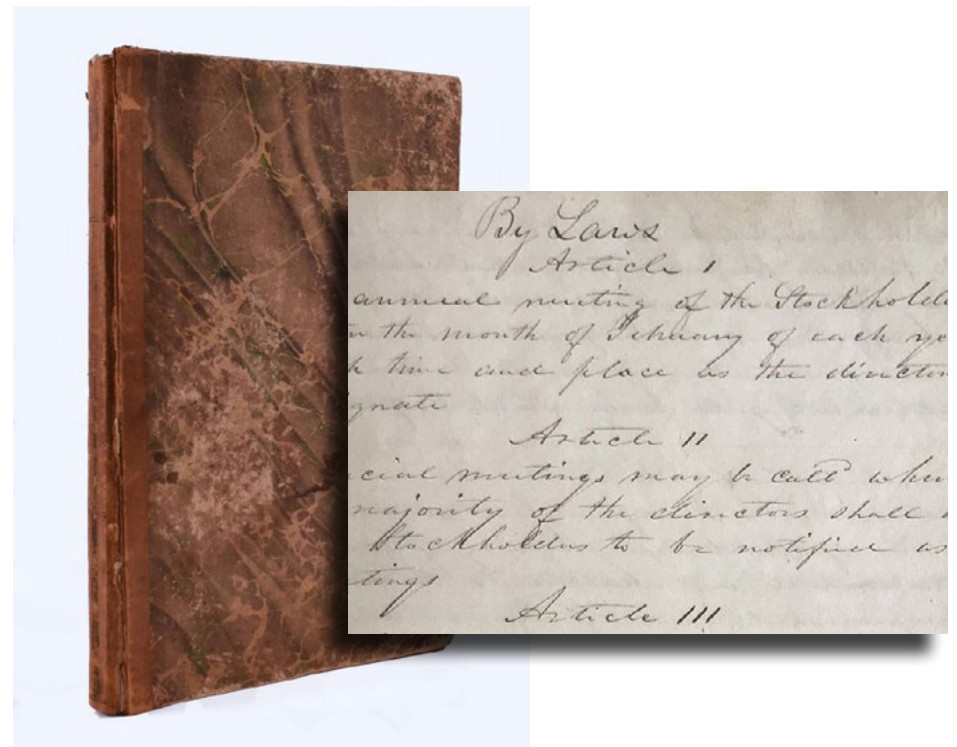 By Laws
Article 1
annual meeting of the Stockholde
n the month of February of each ye
h time and place as the director
gnate
Article 11
cial meetings may be call when
majority of the directors shall
Stockholders to be notified as
tings
Article 111